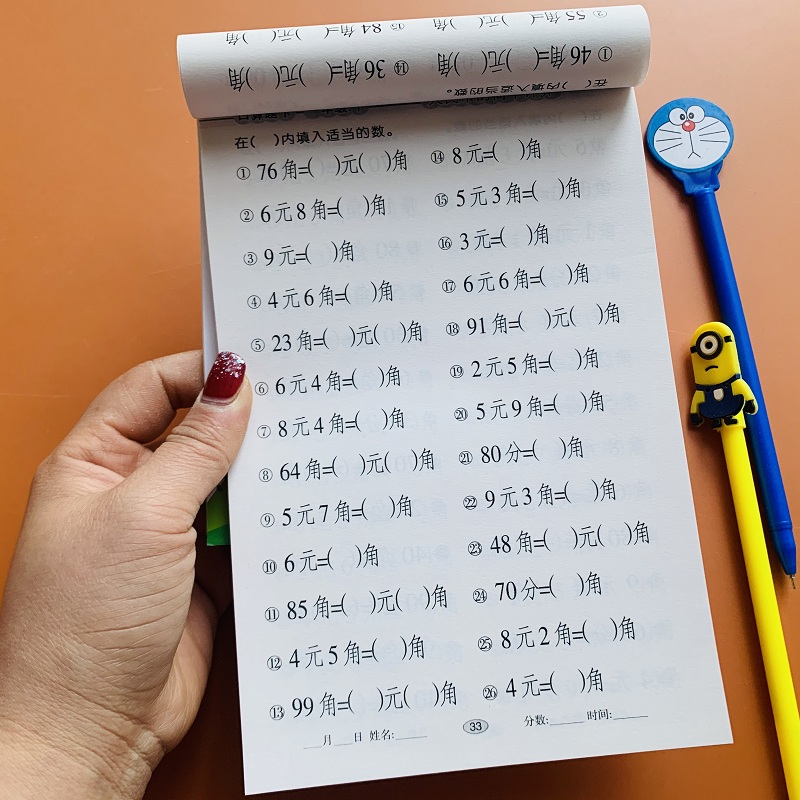 ① 46角=( )元( )角
② 55角=( )元( )角
⑭ 36角=( )元( )角
⑮ 84角=( )元( )角
在( )内填入适当的数。
在( )内填入适当的数。
① 76角=( )元( )角
② 6元8角=( )角
③ 9元=( )角
④ 4元6角=( )角
⑤ 23角=( )元( )角
⑥ 6元4角=( )角
⑦ 8元4角=( )角
⑧ 64角=( )元( )角
⑨ 5元7角=( )角
⑩ 6元=( )角
⑪ 85角=( )元( )角
⑫ 4元5角=( )角
⑬ 99角=( )元( )角
⑭ 8元=( )角
⑮ 5元3角=( )角
⑯ 3元=( )角
⑰ 6元6角=( )角
⑱ 91角=( )元( )角
⑲ 2元5角=( )角
⑳ 5元9角=( )角
㉑ 80分=( )角
㉒ 9元3角=( )角
㉓ 48角=( )元( )角
㉔ 70分=( )角
㉕ 8元2角=( )角
㉖ 4元=( )角
___月___日 姓名:_____
33
分数:_____ 时间:_____